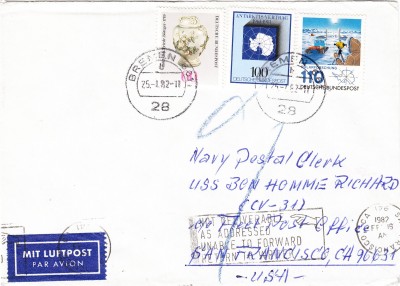 BREMEN
25.-1.82-11
28
ANTARKTISVERTRAG
100
DEUTSCHE BUNDESPOST
110
DEUTSCHE BUNDESPOST
28
Navy Postal Clerk
USS BON HOMME RICHARD
(CV-31)
Post Office
SAN FRANCISCO, CA 96631
-USA-
NOT DELIVERABLE
AS ADDRESSED
UNABLE TO FORWARD
1982
MIT LUFTPOST
PAR AVION